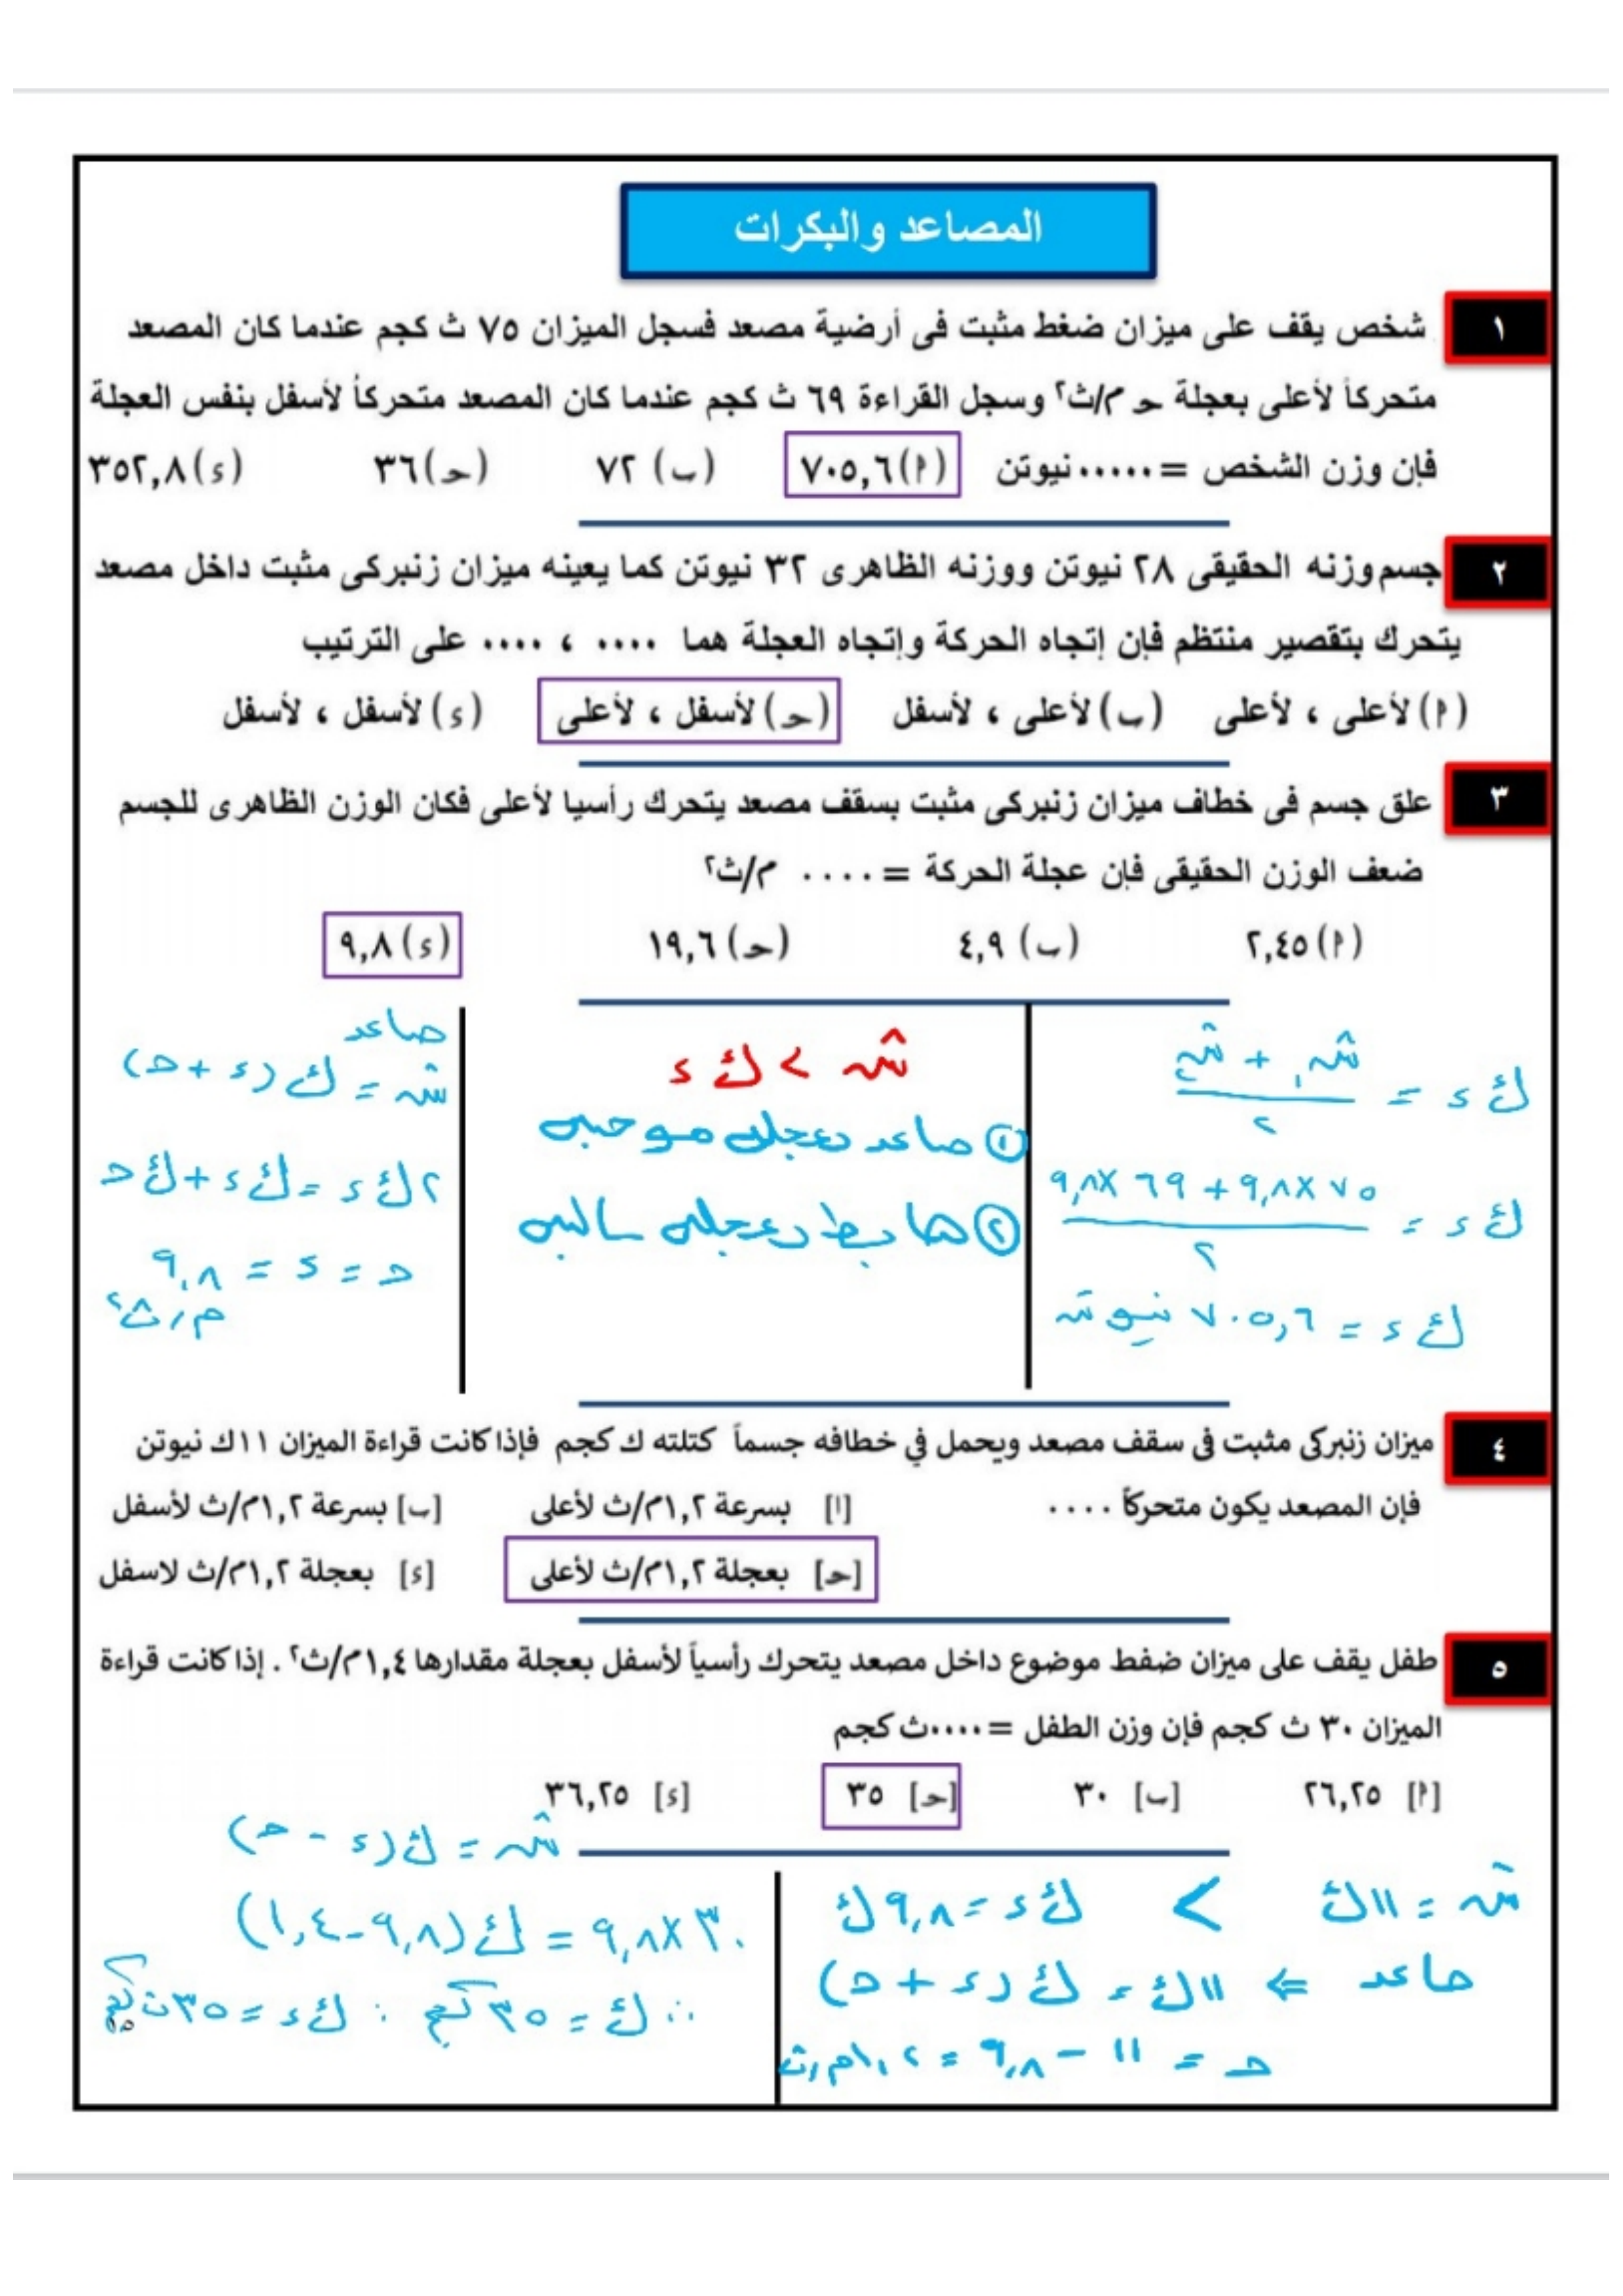 المصاعد والبكرات
١
شخص يقف على ميزان ضغط مثبت فى أرضية مصعد فسجل الميزان ٧٥ ث كجم عندما كان المصعد
متحركاً لأعلى بعجلة حـ م/ث٢ وسجل القراءة ٦٩ ث كجم عندما كان المصعد متحركاً لأسفل بنفس العجلة
فإن وزن الشخص = ..... نيوتن (أ) ٧٠٥,٦ (ب) ٧٢ (حـ) ٣٦ (ء) ٣٥٢,٨
٢
جسم وزنه الحقيقى ٢٨ نيوتن ووزنه الظاهرى ٣٢ نيوتن كما يعينه ميزان زنبركى مثبت داخل مصعد
يتحرك بتقصير منتظم فإن إتجاه الحركة وإتجاه العجلة هما .... ، .... على الترتيب
(أ) لأعلى ، لأعلى (ب) لأعلى ، لأسفل (حـ) لأسفل ، لأعلى (ء) لأسفل ، لأسفل
٣
علق جسم فى خطاف ميزان زنبركى مثبت بسقف مصعد يتحرك رأسيا لأعلى فكان الوزن الظاهرى للجسم
ضعف الوزن الحقيقى فإن عجلة الحركة = .... م/ث٢
(أ) ٢,٤٥ (ب) ٤,٩ (حـ) ١٩,٦ (ء) ٩,٨
ك ء = (شَ١ + شَ٢) / ٢
ك ء = (٧٥ × ٩,٨ + ٦٩ × ٩,٨) / ٢
ك ء = ٧٠٥,٦ نيوتن
شَ > ك ء
① صاعد بعجلة موجبه
② هابط بعجله سالبه
صاعد
شَ = ك (ء + حـ)
٢ ك ء = ك ء + ك حـ
حـ = ء = ٩,٨
م/ث٢
٤
ميزان زنبركى مثبت فى سقف مصعد ويحمل في خطافه جسماً كتلته ك كجم فإذا كانت قراءة الميزان ١١ك نيوتن
فإن المصعد يكون متحركاً .... [أ] بسرعة ١,٢م/ث لأعلى [ب] بسرعة ١,٢م/ث لأسفل
[حـ] بعجلة ١,٢م/ث لأعلى [ء] بعجلة ١,٢م/ث لاسفل
٥
طفل يقف على ميزان ضفط موضوع داخل مصعد يتحرك رأسياً لأسفل بعجلة مقدارها ١,٤م/ث٢ . إذا كانت قراءة
الميزان ٣٠ ث كجم فإن وزن الطفل = ....ث كجم
[أ] ٢٦,٢٥ [ب] ٣٠ [حـ] ٣٥ [ء] ٣٦,٢٥
شَ = ١١ك > ك ء = ٩,٨ ك
صاعد ⇐ ١١ك = ك (ء + حـ)
حـ = ١١ - ٩,٨ = ١,٢ م/ث
شَ = ك (ء - حـ)
٣٠ × ٩,٨ = ك (٩,٨ - ١,٤)
∴ ك = ٣٥ كجم ∴ ك ء = ٣٥ ث كجم